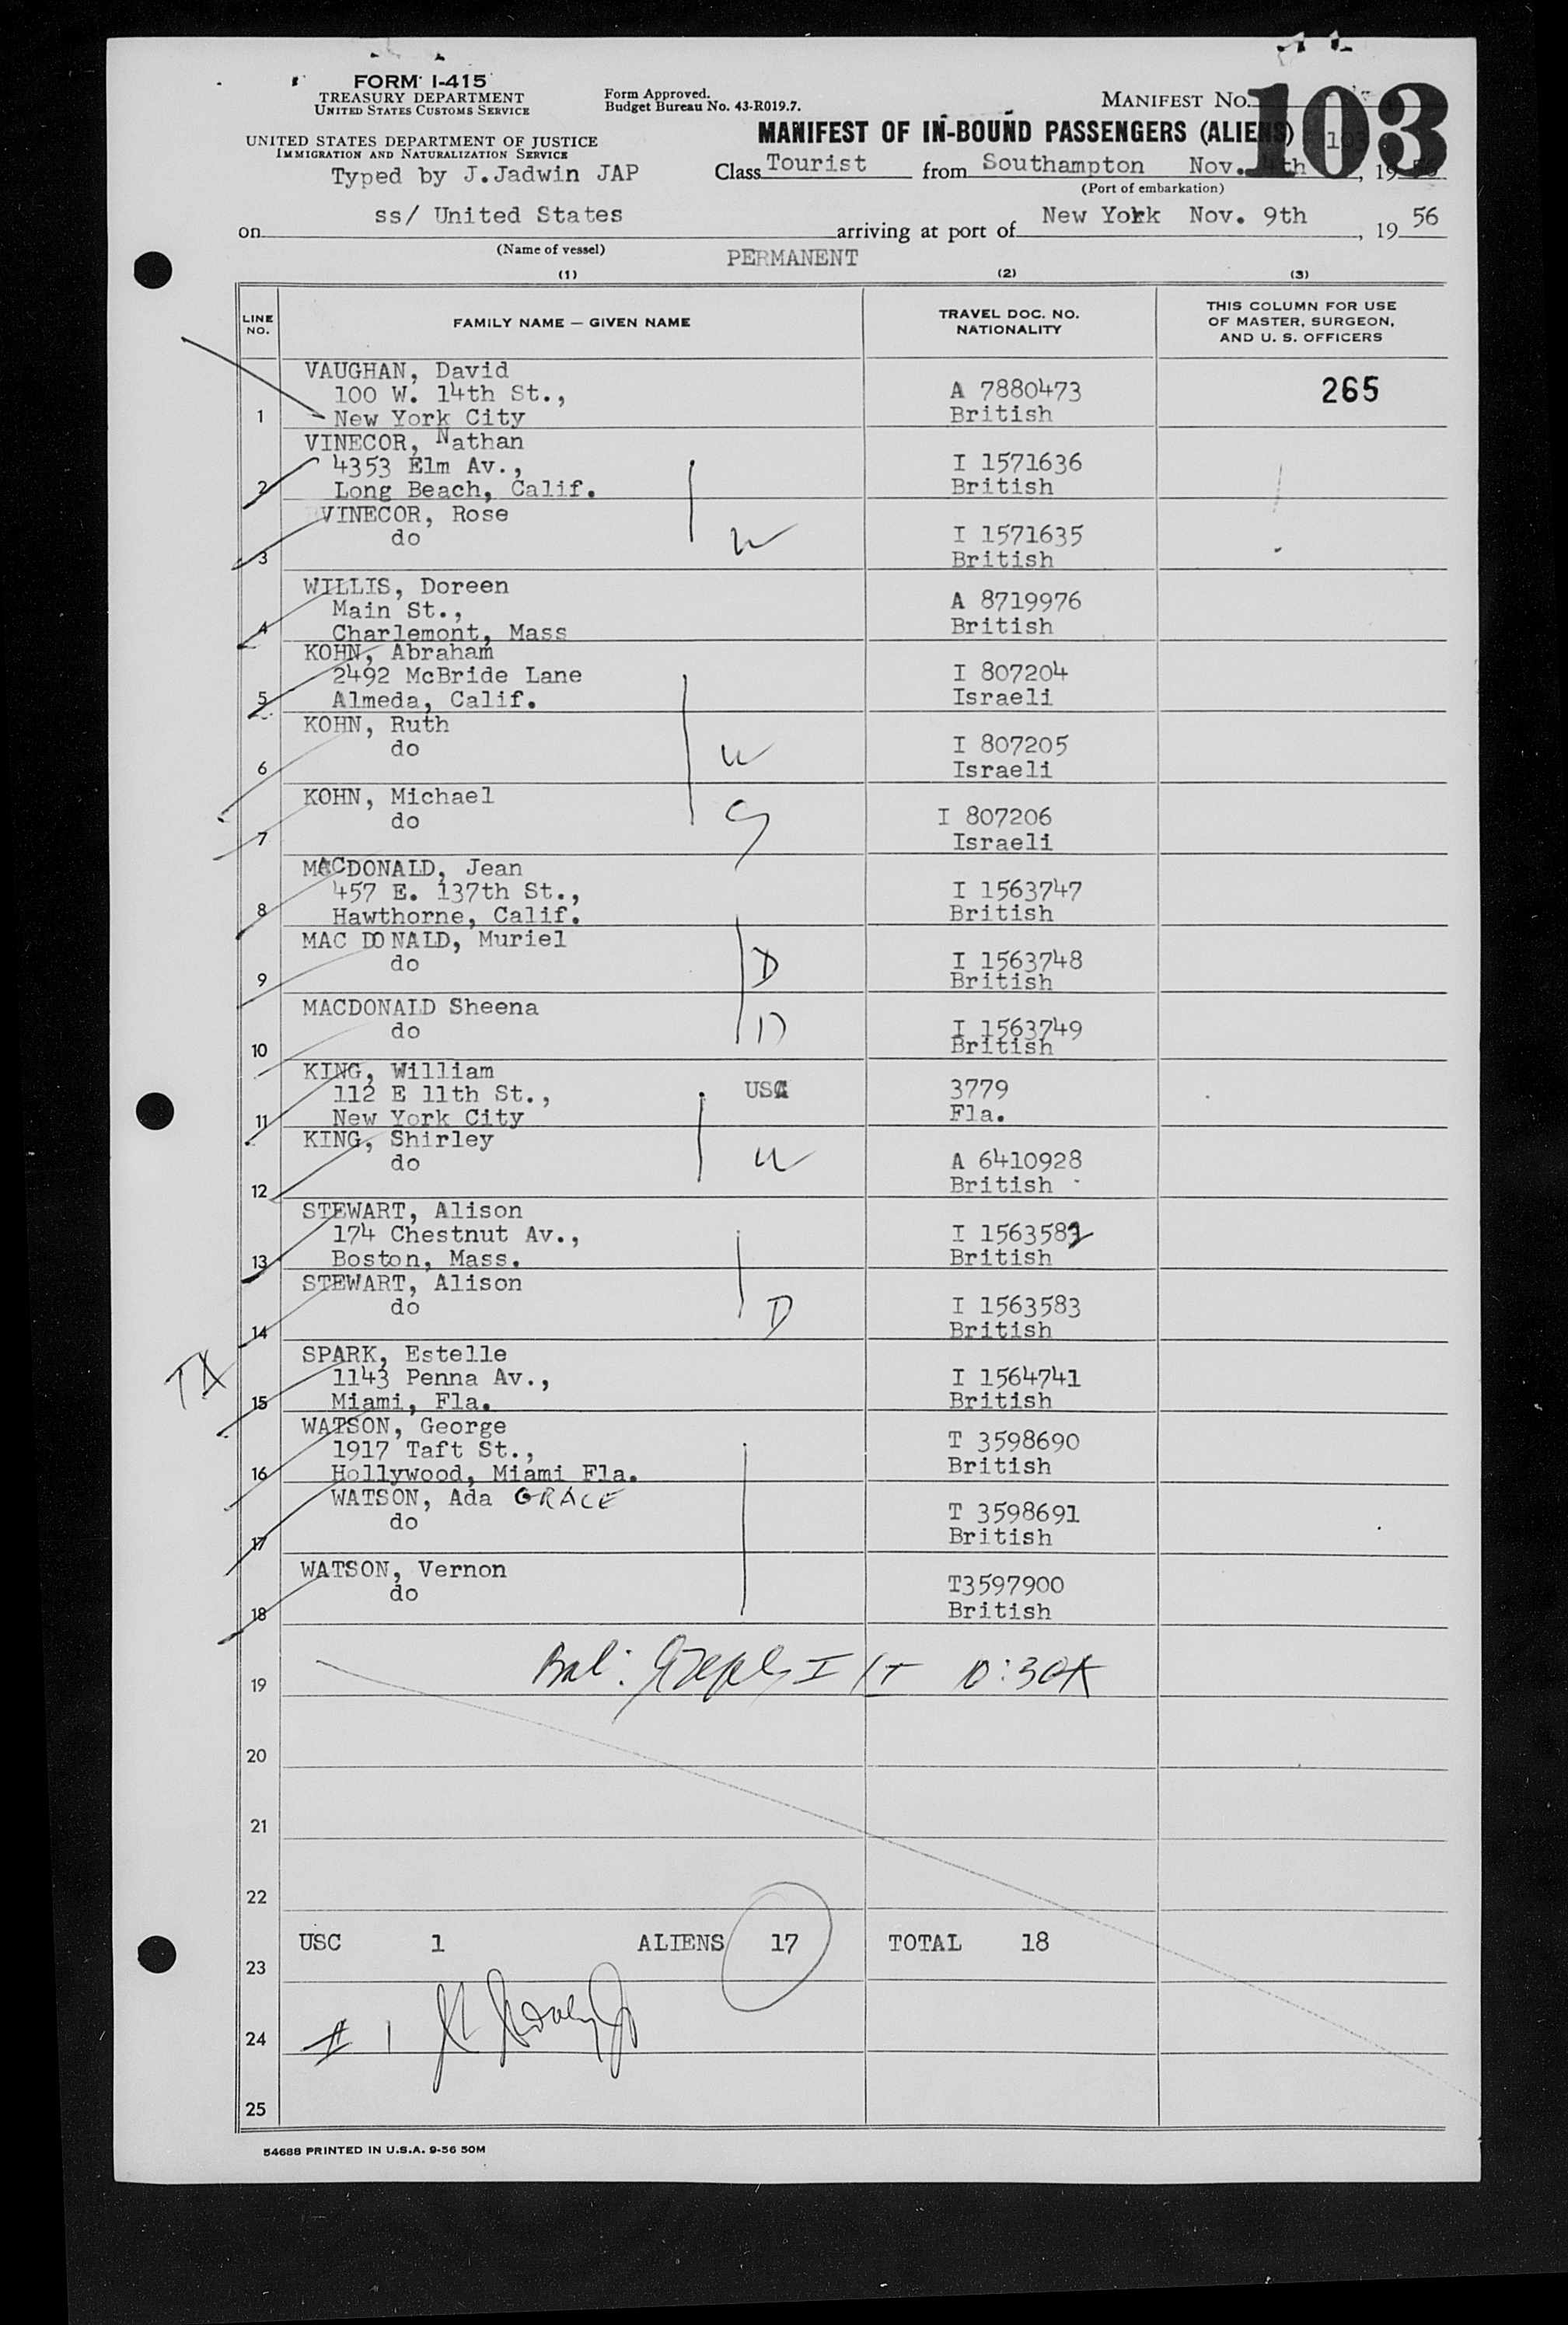 FORM I-415
TREASURY DEPARTMENT
UNITED STATES CUSTOMS SERVICE
Form Approved.
Budget Bureau No. 43-R019.7.
MANIFEST No. 103
103
UNITED STATES DEPARTMENT OF JUSTICE
IMMIGRATION AND NATURALIZATION SERVICE
MANIFEST OF IN-BOUND PASSENGERS (ALIENS)
Typed by J.Jadwin JAP
Class Tourist from Southampton Nov. th, 19
(Port of embarkation)
on ss/ United States arriving at port of New York Nov. 9th, 19 56
(Name of vessel)
PERMANENT
(1) (2) (3)
LINE NO. FAMILY NAME — GIVEN NAME TRAVEL DOC. NO. NATIONALITY THIS COLUMN FOR USE OF MASTER, SURGEON, AND U. S. OFFICERS
VAUGHAN, David
100 W. 14th St., A 7880473 265
1 New York City British
VINECOR, Nathan
4353 Elm Av., I 1571636
2 Long Beach, Calif. British
VINECOR, Rose
do I 1571635
3 British
WILLIS, Doreen
Main St., A 8719976
4 Charlemont, Mass British
KOHN, Abraham
2492 McBride Lane I 807204
5 Almeda, Calif. Israeli
KOHN, Ruth
do I 807205
6 Israeli
KOHN, Michael
do I 807206
7 Israeli
MACDONALD, Jean
457 E. 137th St., I 1563747
8 Hawthorne, Calif. British
MAC DONALD, Muriel
do D I 1563748
9 British
MACDONALD Sheena
do D I 1563749
10 British
KING, William
112 E 11th St., USC 3779
11 New York City Fla.
KING, Shirley
do A 6410928
12 British
STEWART, Alison
174 Chestnut Av., I 1563582
13 Boston, Mass. British
STEWART, Alison
do D I 1563583
14 British
SPARK, Estelle
1143 Penna Av., I 1564741
15 Miami, Fla. British
WATSON, George
1917 Taft St., T 3598690
16 Hollywood, Miami Fla. British
WATSON, Ada GRACE
do T 3598691
17 British
WATSON, Vernon
do T3597900
18 British
19
20
21
22
USC 1 ALIENS 17 TOTAL 18
23
24 # 1
25
54688 PRINTED IN U.S.A. 9-56 50M